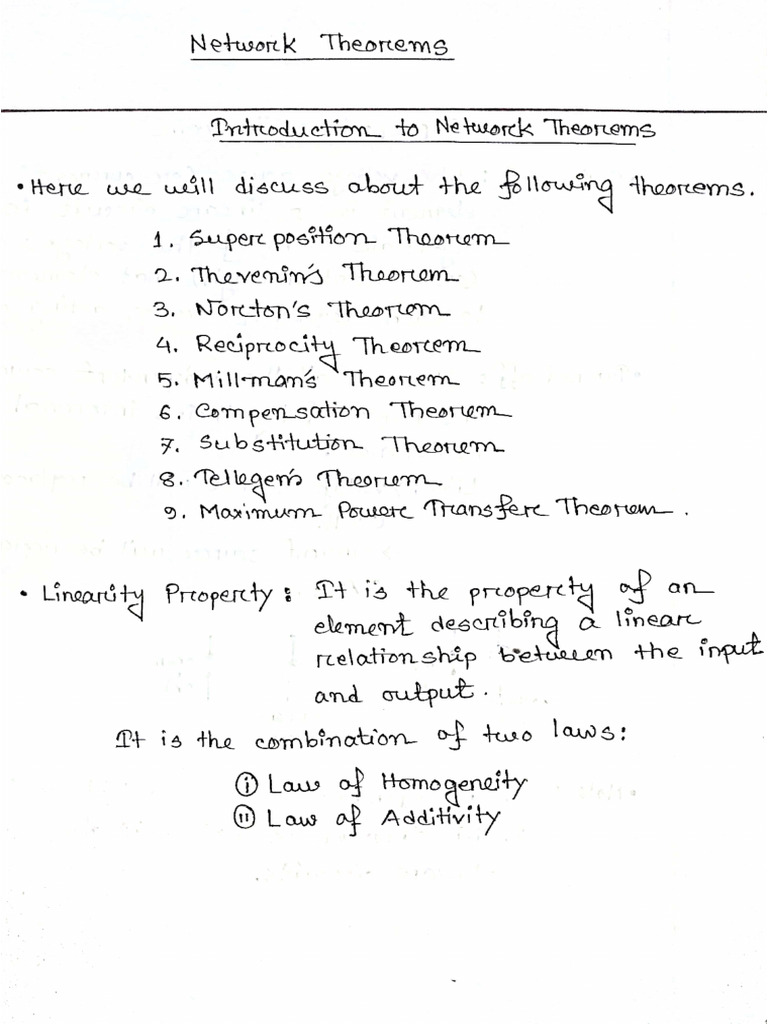 Network Theorems
Introduction to Network Theorems
• Here we will discuss about the following theorems.
1. Superposition Theorem
2. Thevenin's Theorem
3. Norton's Theorem
4. Reciprocity Theorem
5. Millman's Theorem
6. Compensation Theorem
7. Substitution Theorem
8. Tellegen's Theorem
9. Maximum Power Transfer Theorem.
• Linearity Property: It is the property of an
element describing a linear
relationship between the input
and output.
It is the combination of two laws:
(i) Law of Homogeneity
(ii) Law of Additivity